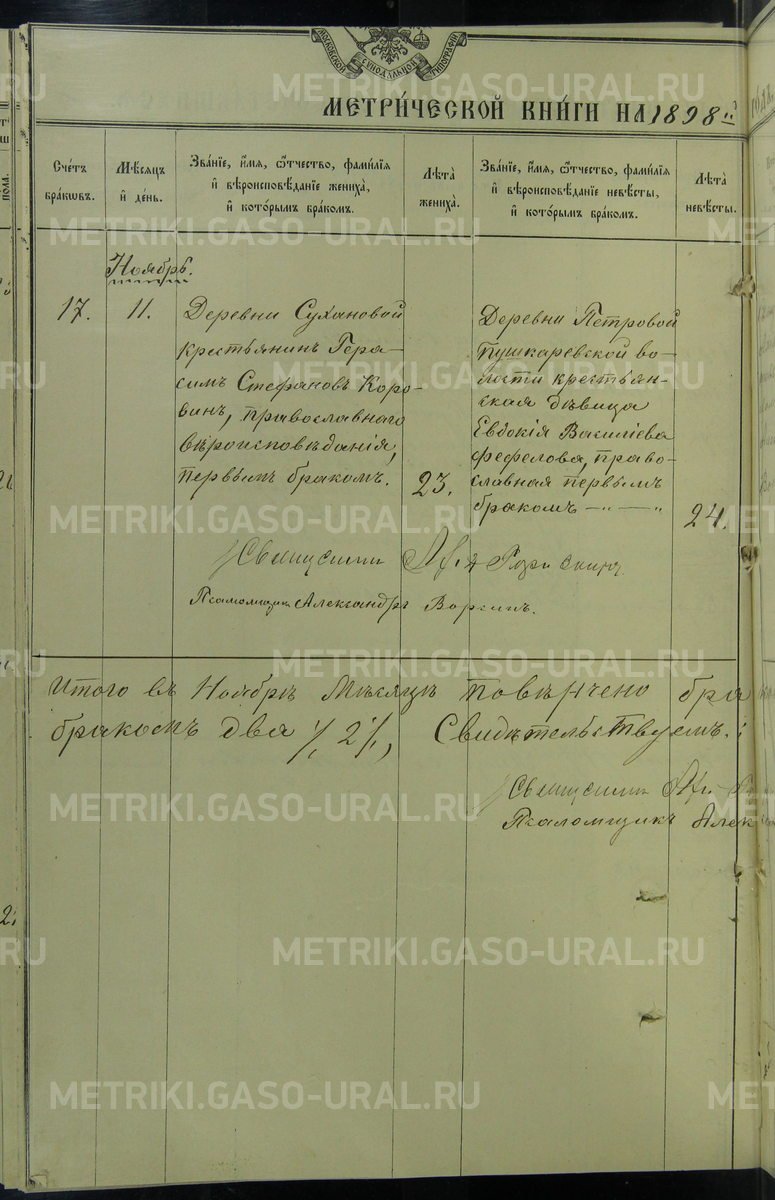 МОСКОВСКОЙ СѴНОДАЛЬНОЙ ТИПОГРАФІИ
МЕТРИ́ЧЕСКОЙ КНИ́ГИ НА 1898 й
Сче́тъ бра́кѡвъ.
Мѣ́сяцъ и҆ де́нь.
Зва́нїе, и҆́мя, ѻ҆́тчество, фами́лїя
и҆ вѣроисповѣ́данїе жениха̀,
и҆ кото́рымъ бра́комъ.
Лѣ́та жениха̀.
Зва́нїе, и҆́мя, ѻ҆́тчество, фами́лїя
и҆ вѣроисповѣ́данїе невѣ́сты,
и҆ кото́рымъ бра́комъ.
Лѣ́та невѣ́сты.
Ноябрь.
17.
11.
Деревни Сухановой
крестьянинъ Гера-
симъ Стефановъ Коро-
винъ, православнаго
вѣроисповѣданія,
первымъ бракомъ.
23.
Деревни Петровой
Пушкаревской во-
лости крестьян-
ская дѣвица
Евдокія Василіева
Фефелова, право-
славная первымъ
бракомъ — " — "
24.
Священникъ
Псаломщикъ Александръ
Итого въ Ноябрѣ Мѣсяцѣ повѣнчено бра
бракомъ два /, 2/, Свидѣтельствуемъ:
Священникъ
Псаломщикъ Алек
METRIKI.GASO-URAL.RU